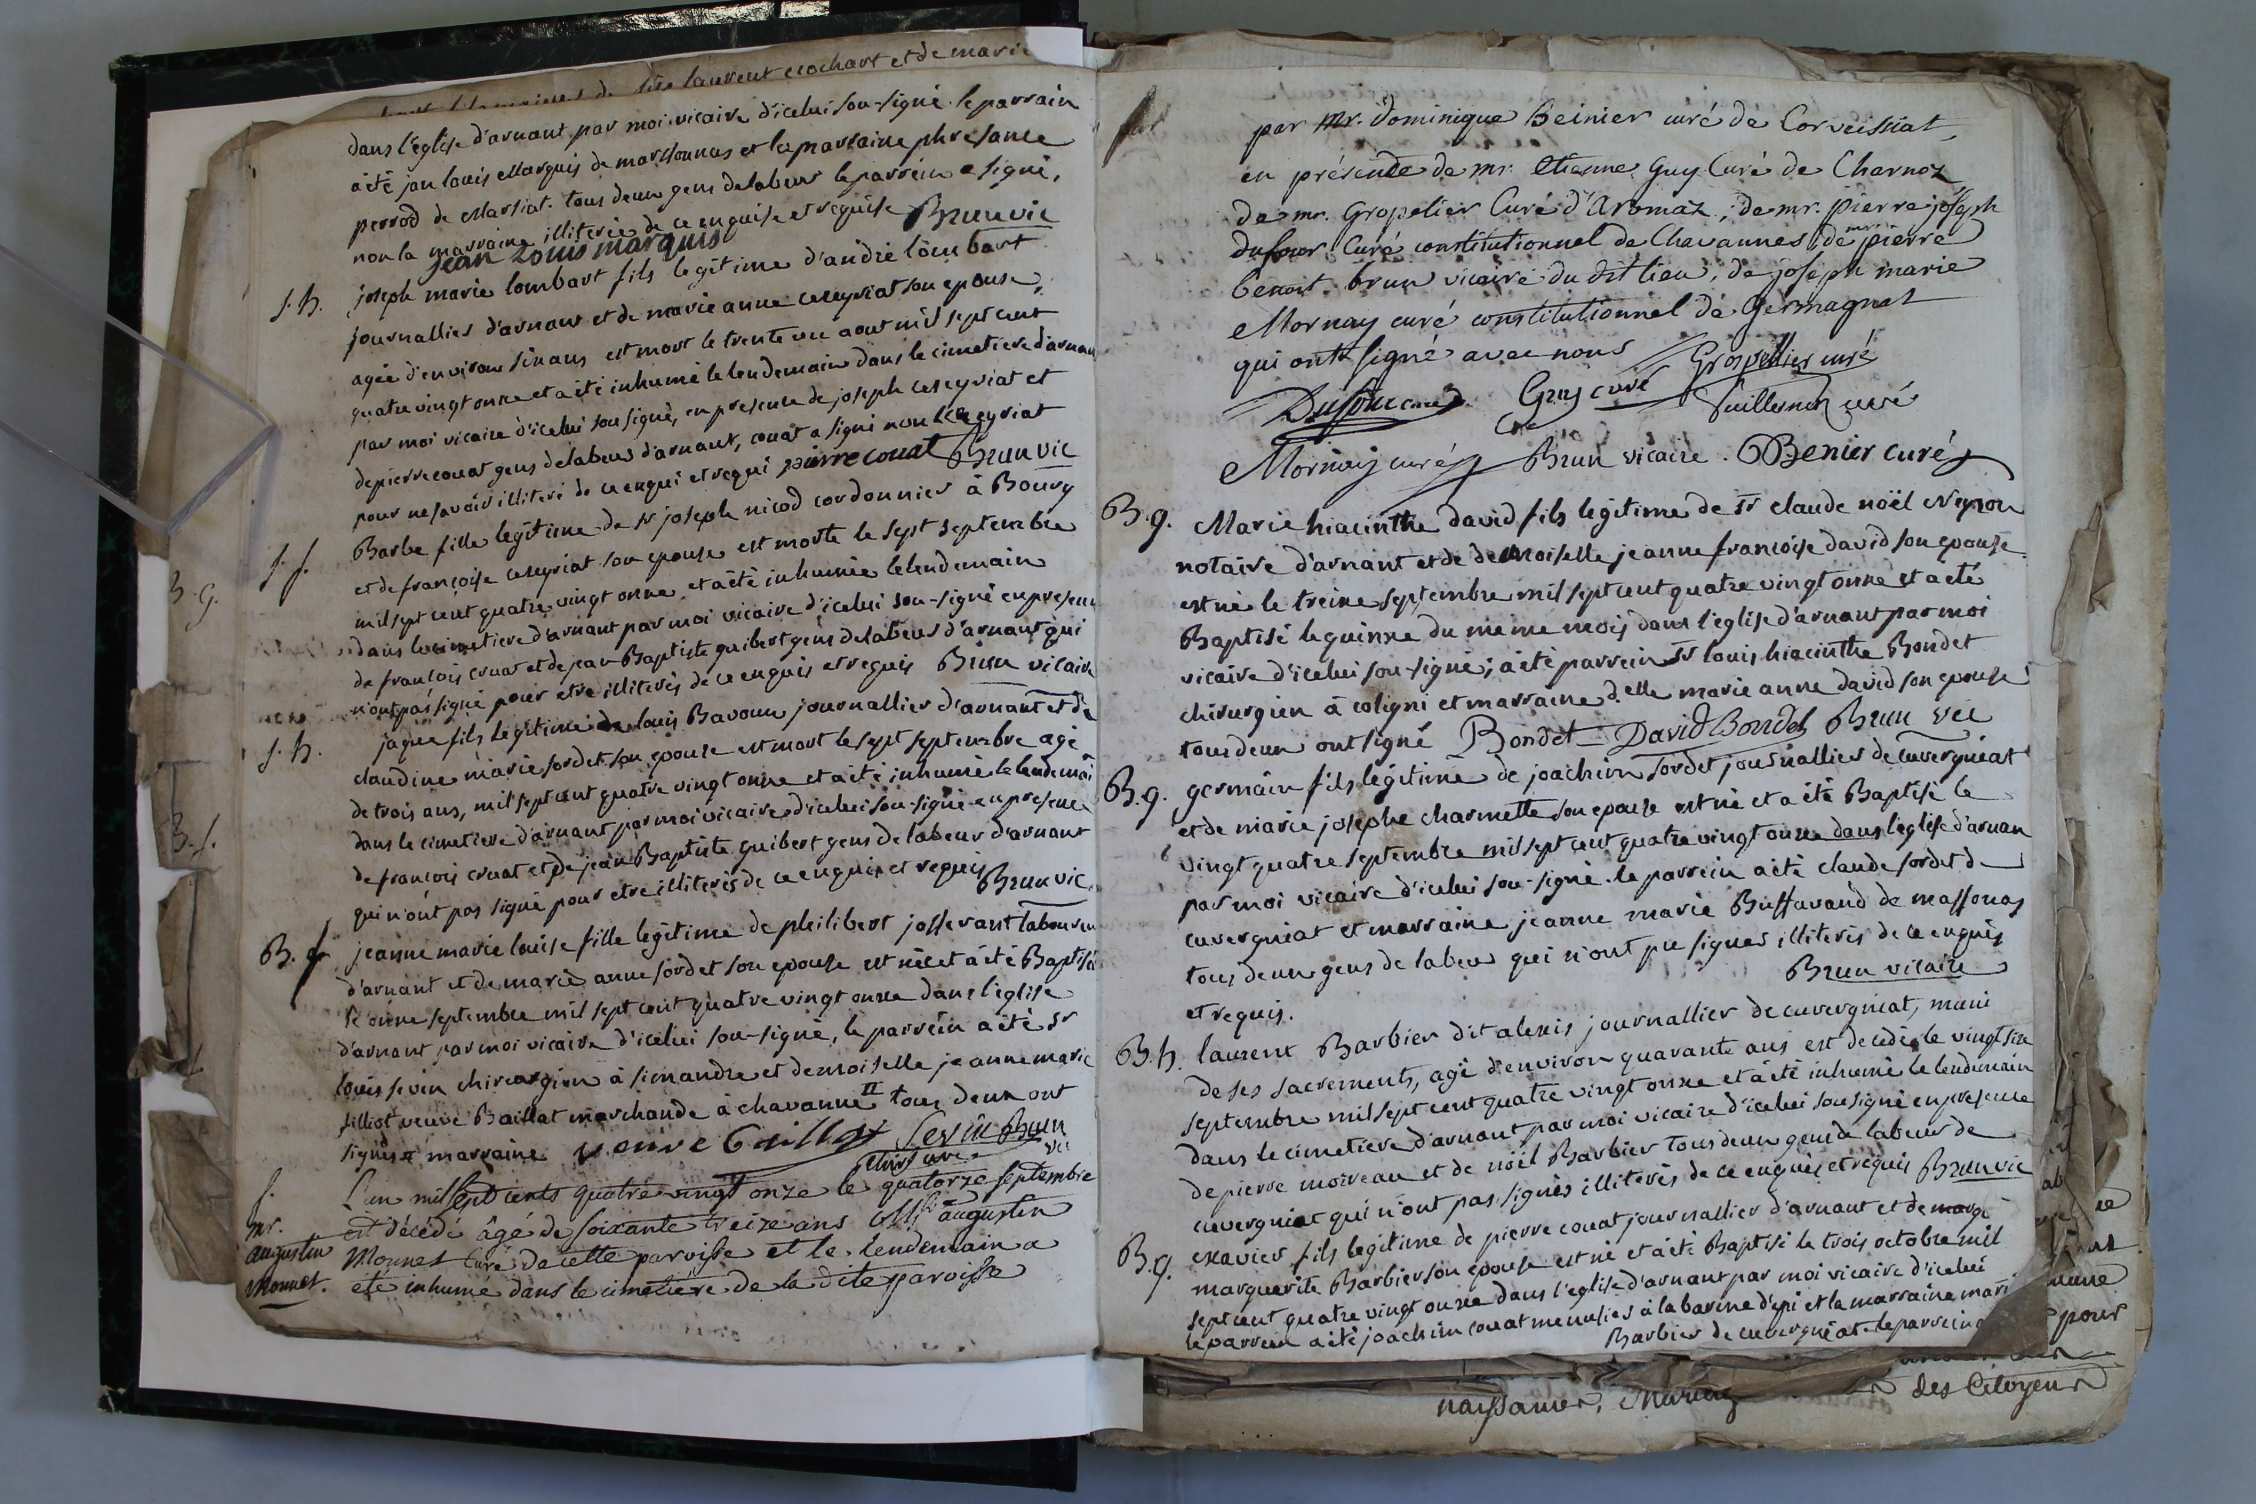 laurent crochart et de marie
dans l'église d'arnant par moi vicaire d'icelui sou-signé. le parrain
a été jan louis Marquis de marsonnas et la marraine
perrod de Marsiat. tous deux gens de labeur le parrein a signé,
non la marraine illiterée de ce enquise et requise Brun vic
jean Louis marquis
s. h. joseph marie lombart fils legitime d'andré lombart
journallier d'arnant et de marie anne ceseyriat son epouse,
agée d'environ six ans est mort le trente un aout mil sept cent
quatre vingt onze et a été inhumé le lendemain dans le cimetiere d'arnan
par moi vicaire d'icelui sousigné, en presence de joseph ceseyriat et
de pierre couat gens de labeur d'arnant, couat a signé non ceseyriat
pour ne savoir illiteré de ce enqui et requi pierre couat Brun vic
s. f. Barbe fille legitime de sr joseph nicod cordonnier à Bourg
et de françoise ceseyriat son epouse est morte le sept septembre
mil sept cent quatre vingt onze et a été inhumée le lendemain
dans le cimetiere d'arnant par moi vicaire d'icelui sou-signé en presen
de françois cruat et de jean Baptiste guibert gens de labeur d'arnant qui
n'ont pas signé pour etre illiterés de ce enquis et requis Brun vicaire
s. h. jaque fils legitime de louis Bavoux journallier d'arnant et de
claudine marie sordet son epouse est mort le sept septembre agé
de trois ans, mil sept cent quatre vingt onze et a été inhumé le lendemai
dans le cimetiere d'arnant par moi vicaire d'icelui sou-signé en presence
de françois cruat et de jean Baptiste guibert gens de labeur d'arnant
qui n'ont pas signé pour etre illiterés de ce enquis et requis Brun vic
B. f. jeanne marie louise fille legitime de philibert josserant laboureu
d'arnant et de marie anne sordet son epouse est née et a été Baptisé
le onze septembre mil sept cent quatre vingt onze dans l'église
d'arnant par moi vicaire d'icelui sou-signé, le parréin a été sr
louis sevin chirurgien à simandre et demoiselle jeanne marie
filliot veuve Baillat marchande à chavanne tous deux ont
signés marraine veuve Baillat Sevin Brun
chirurgien vic
s. L'an mil sept cents quatre vingt onze le quatorze septembre
mr. est décédé âgé de soixante treize ans augustin
augustin Monnet Curé de cette paroisse et le lendemain a
Monnet. été inhumé dans le cimetiere de la dite paroisse
B. g.
B. f.
par Mr. Dominique Beinier curé de Corveissiat,
en présence de mr. Etienne Guy Curé de Charnoz
de mr. Gropelier Curé d'Aromaz, de mr. pierre joseph
dufour Curé constitutionnel de Chavannes, de mr pierre
benoit brun vicaire du dit lieu, de joseph marie
Mornay curé constitutionnel de Germagnat
qui ont signé avec nous Grospellier curé
Dufour curé Guy curé Guillermin curé
Mornay curé Brun vicaire. Benier curé
B. g. Marie hiacinthe david fils legitime de sr claude noël
notaire d'arnant et de demoiselle jeanne françoise david son epouse
est né le treize septembre mil sept cent quatre vingt onze et a été
Baptisé le quinze du meme mois dans l'église d'arnant par moi
vicaire d'icelui sou-signé; a été parrein sr louis hiacinthe Bondet
chirurgien à coligni et marraine d.elle marie anne david son epouse
tous deux ont signé Bondet David Bondet Brun vic
B. g. germain fils legitime de joachim sordet journallier de cuvergniat
et de marie josephe charmette son epouse est né et a été Baptisé le
vingt quatre septembre mil sept cent quatre vingt onze dans l'église d'arnan
par moi vicaire d'icelui sou-signé. le parrein a été claude sordet de
cuvergniat et marraine jeanne marie Buffavand de massonas
tous deux gens de labeur qui n'ont pu signer illiterés de ce enquis
et requis. Brun vicaire
B. h. laurent Barbier dit alexis journallier de cuvergniat, muni
de ses sacrements, agé d'environ quarante ans est decédé le vingt six
septembre mil sept cent quatre vingt onze et a été inhumé le lendemain
dans le cimetiere d'arnant par moi vicaire d'icelui sousigné en presence
de pierre moireau et de noël Barbier tous deux gens de labeur de
cuvergniat qui n'ont pas signés illiterés de ce enquis et requis Brun vic
B. g. exavier fils legitime de pierre couat journallier d'arnant et de marge
marguerite Barbier son epouse est né et a été Baptisé le trois octobre mil
sept cent quatre vingt onze dans l'église d'arnant par moi vicaire d'icelui
le parrein a été joachim couat menusier à la et la marraine mari
Barbier de cuvergniat. le parrein a
pour
des Citoyens
naissances, Mariag